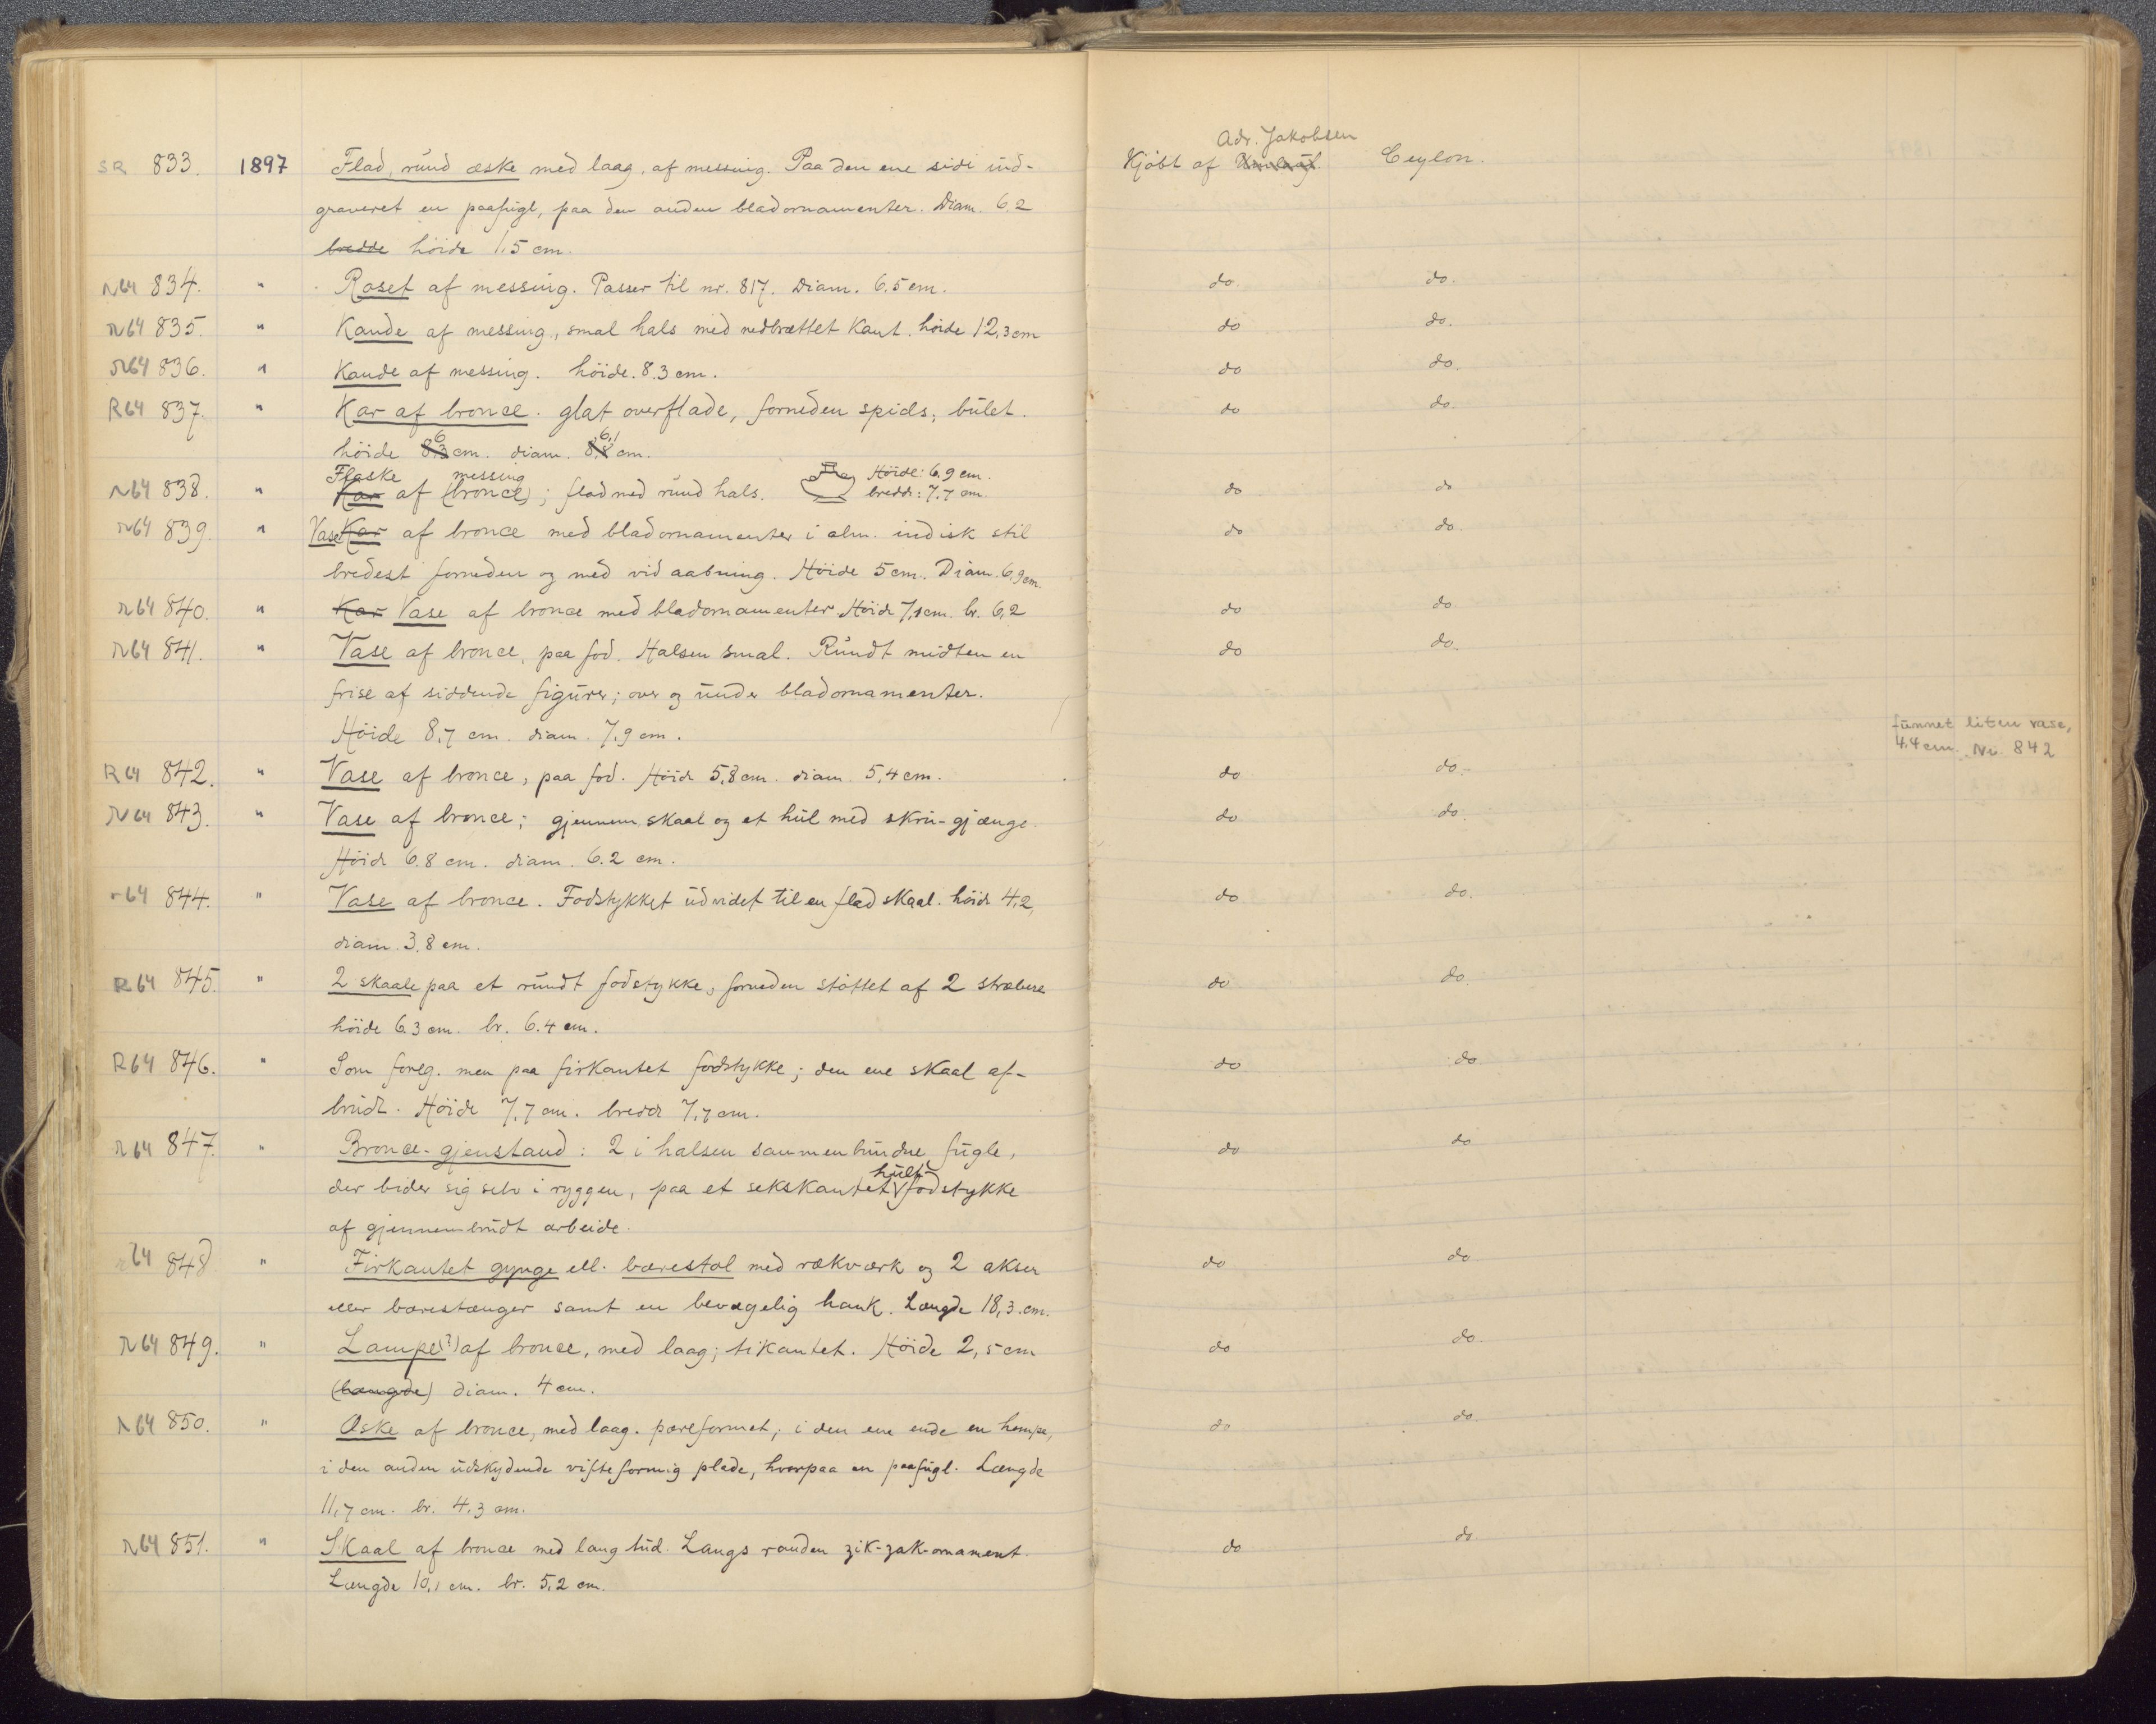 Adr. Jakobsen
SR 833. 1897 Flad, rund æske med laag, af messing. Paa den ene side ind- Kjöbt af Ceylon.
graveret en paafugl, paa den anden bladornamenter. Diam. 6.2
bredde höide 1,5 cm.
R64 834. " Roset af messing. Passer til nr. 817. Diam. 6.5 cm. do do.
R64 835. " Kande af messing, smal hals med nedbrættet Kant. höide 12,3 cm do do.
R64 836. " Kande af messing. höide. 8.3 cm. do do.
R64 837. " Kar af bronce. glat overflade, forneden spids, bulet. do do.
6 6,1
höide 8,3 cm. diam. 8,8 cm.
Flaske messing Höide: 6,9 cm.
R64 838. " Kar af (bronce); flad med rund hals. bredde: 7.7 cm. do do
R64 839. " Vase Kar af bronce med bladornamenter i alm. indisk stil do do.
bredest forneden og med vid aabning. Höide 5 cm. Diam. 6,9 cm.
R64 840. " Kar Vase af bronce med bladornamenter. Höide 7,1 cm. br. 6,2 do do.
R64 841. " Vase af bronce, paa fod. Halsen smal. Rundt midten en do do.
frise af siddende figurer; over og under bladornamenter.
Höide 8,7 cm. diam. 7.9 cm.
funnet liten vase,
4.4 cm. Nr. 842
R64 842. " Vase af bronce, paa fod. Höide 5,8 cm. diam. 5,4 cm. do do.
R64 843. " Vase af bronce; gjennem skaal og et hul med skru-gjænge. do do.
Höide 6.8 cm. diam. 6.2 cm.
r64 844. " Vase af bronce. Fodstykket udvidet til en flad skaal. höide 4,2, do do.
diam. 3.8 cm.
R64 845. " 2 skaale paa et rundt fodstykke, forneden stöttet af 2 stræbere do do.
höide 6.3 cm. br. 6.4 cm.
R64 846. " Som foreg. men paa firkantet fodstykke; den ene skaal af- do do
brudt. Höide 7,7 cm. bredde 7,7 cm.
R64 847. " Bronce-gjenstand: 2 i halsen sammenbundne fugle, do do
hult
der bider sig selv i ryggen, paa et sekskantet fodstykke
af gjennembrudt arbeide.
R64 848 " Firkantet gynge ell. bærestol med rækværk og 2 akser do do.
eller bærestænger samt en bevægelig hank. Længde 18,3 cm.
R64 849. " Lampe(?) af bronce, med laag; tikantet. Höide 2,5 cm do do.
(længde) diam. 4 cm.
R64 850. " Æske af bronce, med laag. pæreformet; i den ene ende en hempe, do do.
i den anden udskydende vifteformig plade, hvorpaa en paafugl. Længde
11,7 cm. br. 4,3 cm.
R64 851. " Skaal af bronce med lang tud. Langs randen zik-zak-ornament. do do.
Længde 10,1 cm. br. 5,2 cm.